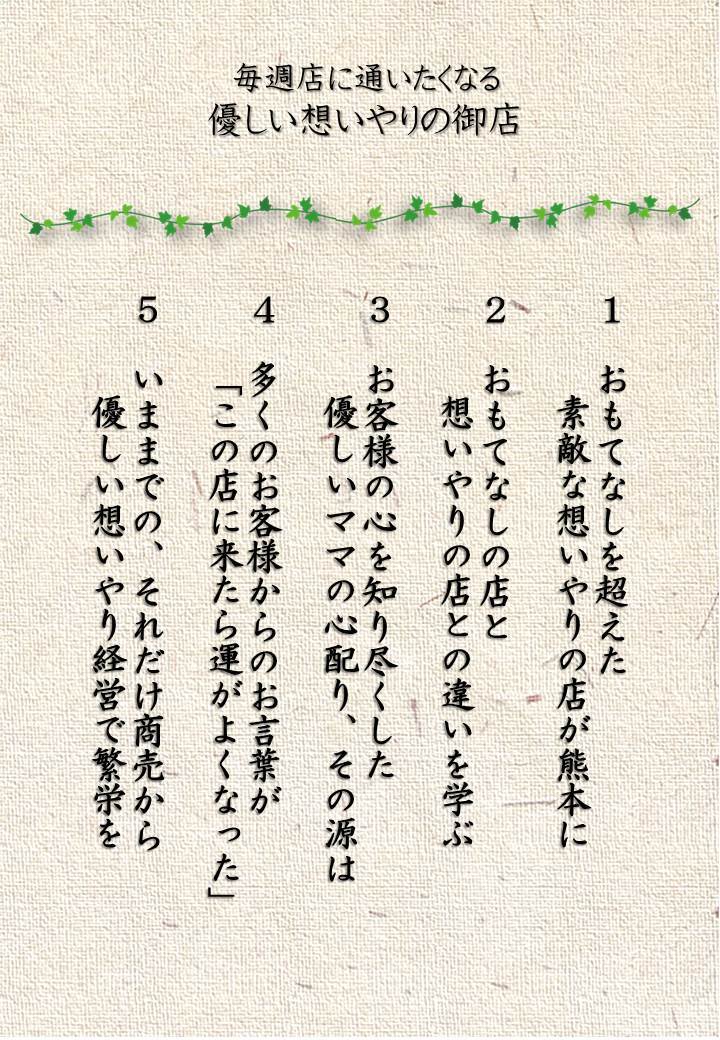 毎週店に通いたくなる
優しい想いやりの御店
1
おもてなしを超えた
素敵な想いやりの店が熊本に
2
おもてなしの店と
想いやりの店との違いを学ぶ
3
お客様の心を知り尽くした
優しいママの心配り、その源は
4
多くのお客様からのお言葉が
「この店に来たら運がよくなった」
5
いままでの、それだけ商売から
優しい想いやり経営で繁栄を